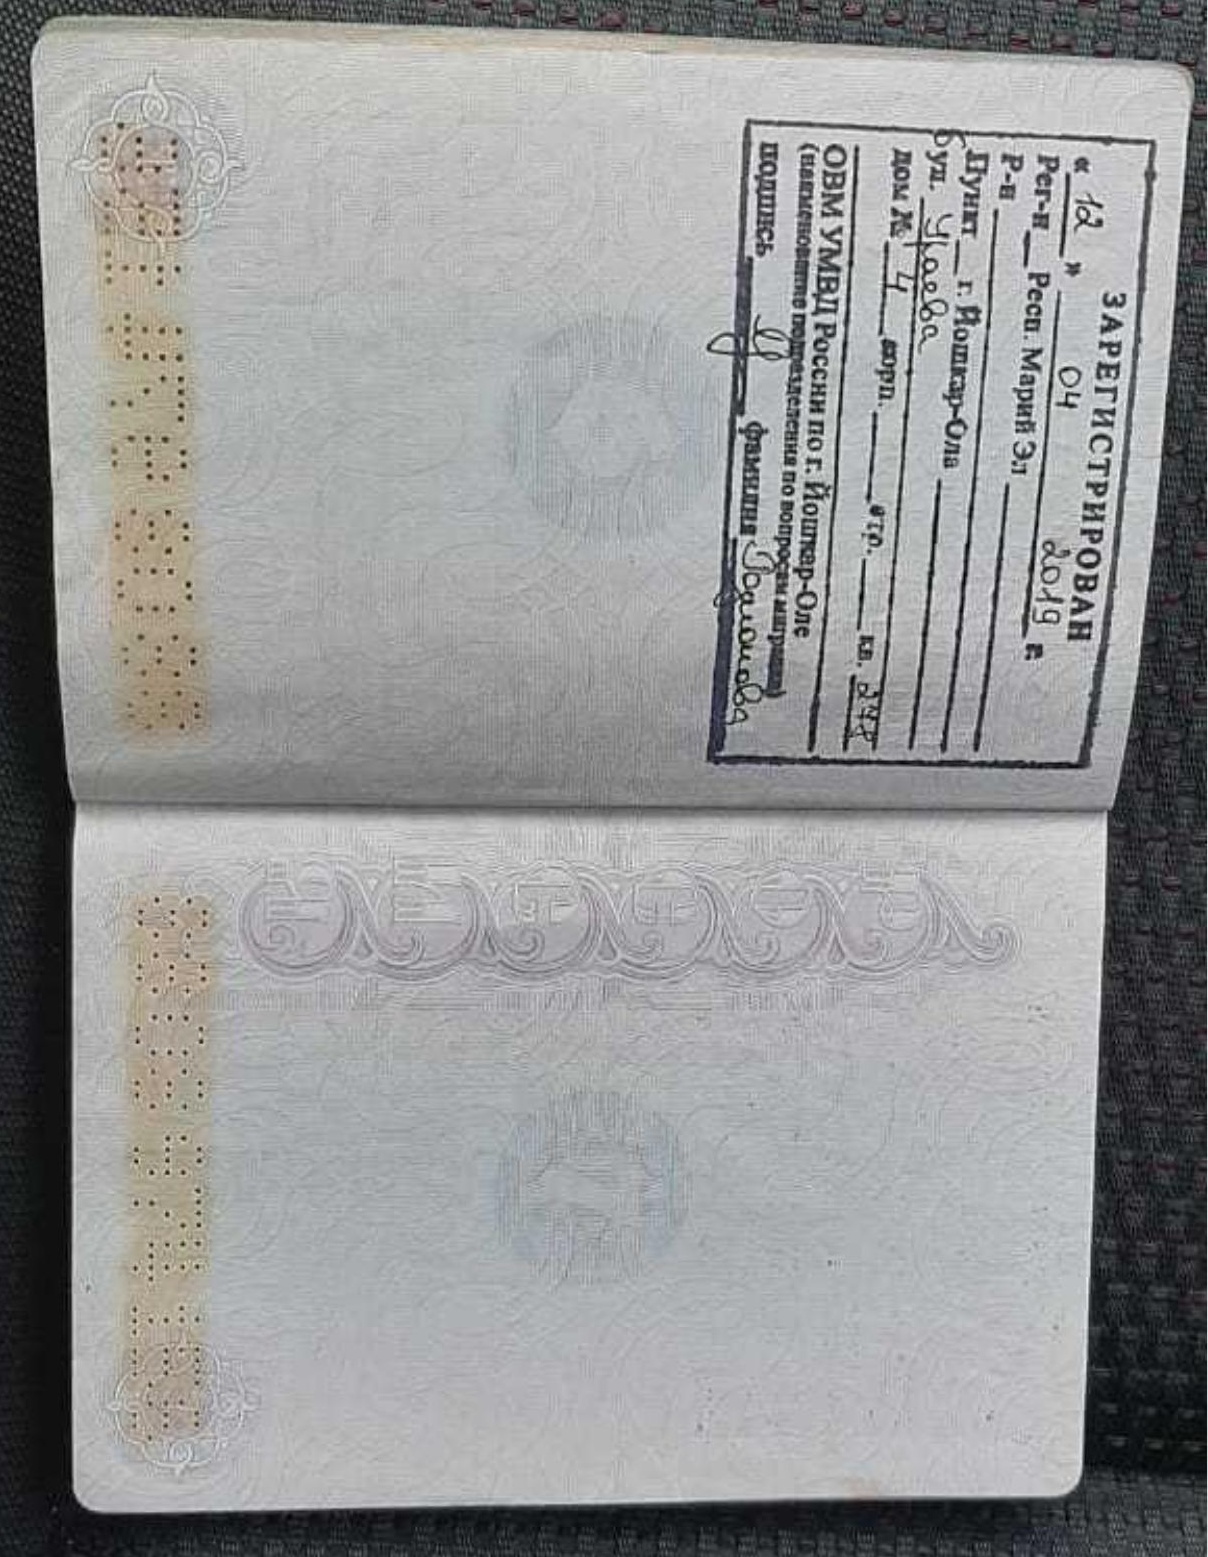 ЗАРЕГИСТРИРОВАН
« 12 » 04 2019 г.
Рег-н Респ. Марий Эл
Р-н
Пункт г. Йошкар-Ола
бул. Чоевa
дом № 4 корп. стр. кв. 248
ОВМ УМВД России по г. Йошкар-Оле
(наименование подразделения по вопросам миграции)
подпись фамилия